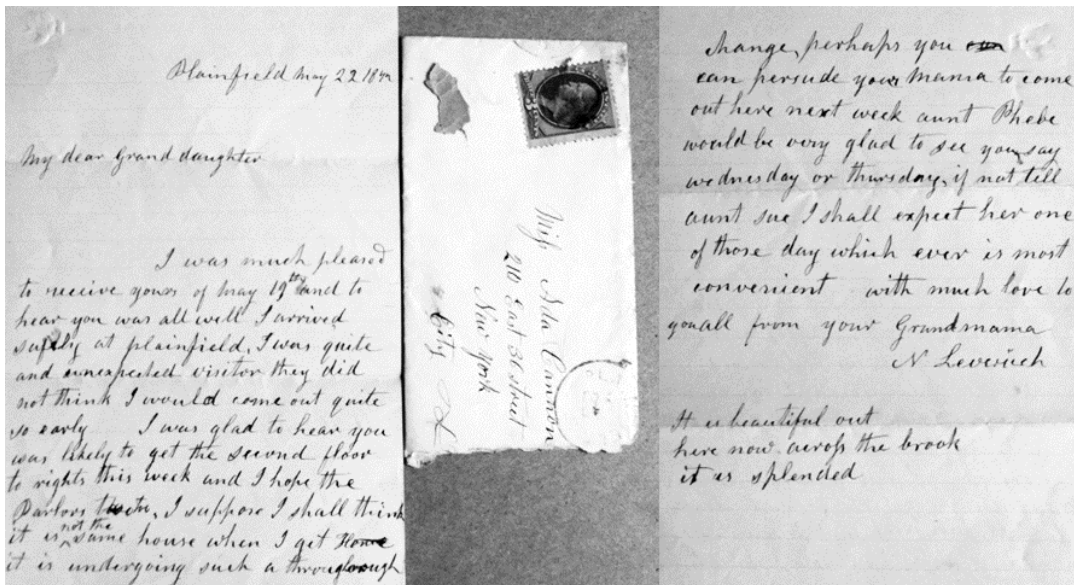 Plainfield May 22
My dear Grand daughter
I was much pleased
to receive yours of May 19th and to
hear you was all well I arrived
safely at plainfield, I was quite
and unexpected visitor they did
not think I would come out quite
so early I was glad to hear you
was likely to get the second floor
to rights this week and I hope the
Parlors I suppose I shall think
it is not the same house when I get Home
it is undergoing such a
Miss Ada Cannon
210 East 30 street
New York
City
change, perhaps you
can persude your Mama to come
out here next week aunt Phebe
would be very glad to see you, say
wednesday or thursday, if not tell
aunt sue I shall expect her one
of those day which ever is most
convenient with much love to
you all from your Grandmama
N Leverich
It is beautiful out
here now across the brook
it is splended